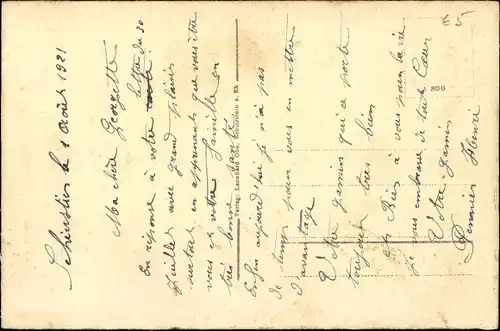 Schierstein le 1 Août 1921
Ma chère Georgette
En réponse à votre lettre du 30
juillet avec grand plaisir
surtout en apprenant que vous être
vous et votre famille en
très bonne santé
Enfin aujourd'hui je n'ai pas
de temps pour vous en mettre
d'avantage
Votre gamin qui ce porte
toujours très bien
et Rien à vous pour la vie
je vous embrasse de tout Cœur
Votre gamin
Henri
Verlag: Schierstein a. Rh.
800